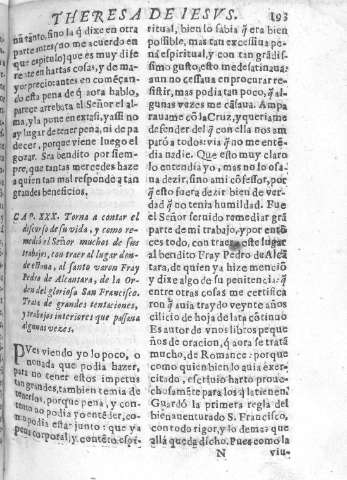 THERESA DE IESVS. 193
nũ tãnto, sino la q̃ dixe en otra
parte antes, no me acuerdo en
que capitulo, que es muy dife
rente en hartas cosas, y de ma-
yor precio: antes en comẽçan-
do esta pena de q̃ aora hablo,
parece arrebata el Señor el al-
ma, y la pone en extasi, y assi no
ay lugar de tener pena, ni de pa
decer, porque viene luego el
gozar. Sea bendito por siem-
pre, que tantas mercedes haze
a quien tan mal responde a tan
grandes beneficios.
CAP. XXX. Torna a contar el
discurso de su vida, y como re-
mediò el Señor mucho de sus
trabajos, con traer al lugar don-
de estaua, al santo varon Fray
Pedro de Alcantara, de la Or-
den del glorioso San Francisco.
Trata de grandes tentaciones,
y trabajos interiores que passaua
algunas vezes.
PVes viendo yo lo poco, o
nonada que podia hazer,
para no tener estos impetus
tan grandes, tambien temia de
tenerlos, porque pena, y con-
tento no podia yo entẽder, co-
mo podia estar junto: que ya
pena corporal, y contẽto espi-
ritual, bien lo sabia q̃ era bien
possible, mas tan excessiua pe-
na espiritual, y con tan grãdis-
simo gusto, esto me desatinaua:
aun no cessaua en procurar re-
sistir, mas podia tan poco, q̃ al-
gunas vezes me cãsaua. Ampa
rauame cõ la Cruz, y queriame
defender del q̃ con ella nos am-
parò a todos: via q̃ no me entẽ-
dia nadie. Que esto muy claro
lo entendia yo, mas no lo osa-
ua dezir, sino a mi cõfessor, por
q̃ esto fuera dezir bien de ver-
dad q̃ no tenia humildad. Fue
el Señor seruido remediar grã
parte de mi trabajo, y por entõ
ces todo, con traer a este lugar
al bendito Fray Pedro de Alcã
tara, de quien ya hize menciõ
y dixe algo de su penitẽcia: q̃
entre otras cosas me certifica
ron q̃ auia traydo veynte años
cilicio de hoja de lata cõtinuo
Es autor de vnos libros peque
ños de oracion, q̃ aora se tratã
mucho, de Romance: porque
como quien bien lo auia exer-
citado, escriuiò harto proue-
chosamẽte para los q̃ la tienen.
Guardò la primera regla del
bienauenturado S. Francisco,
con todo rigor, y lo demas que
allà queda dicho. Pues como la
N viu-